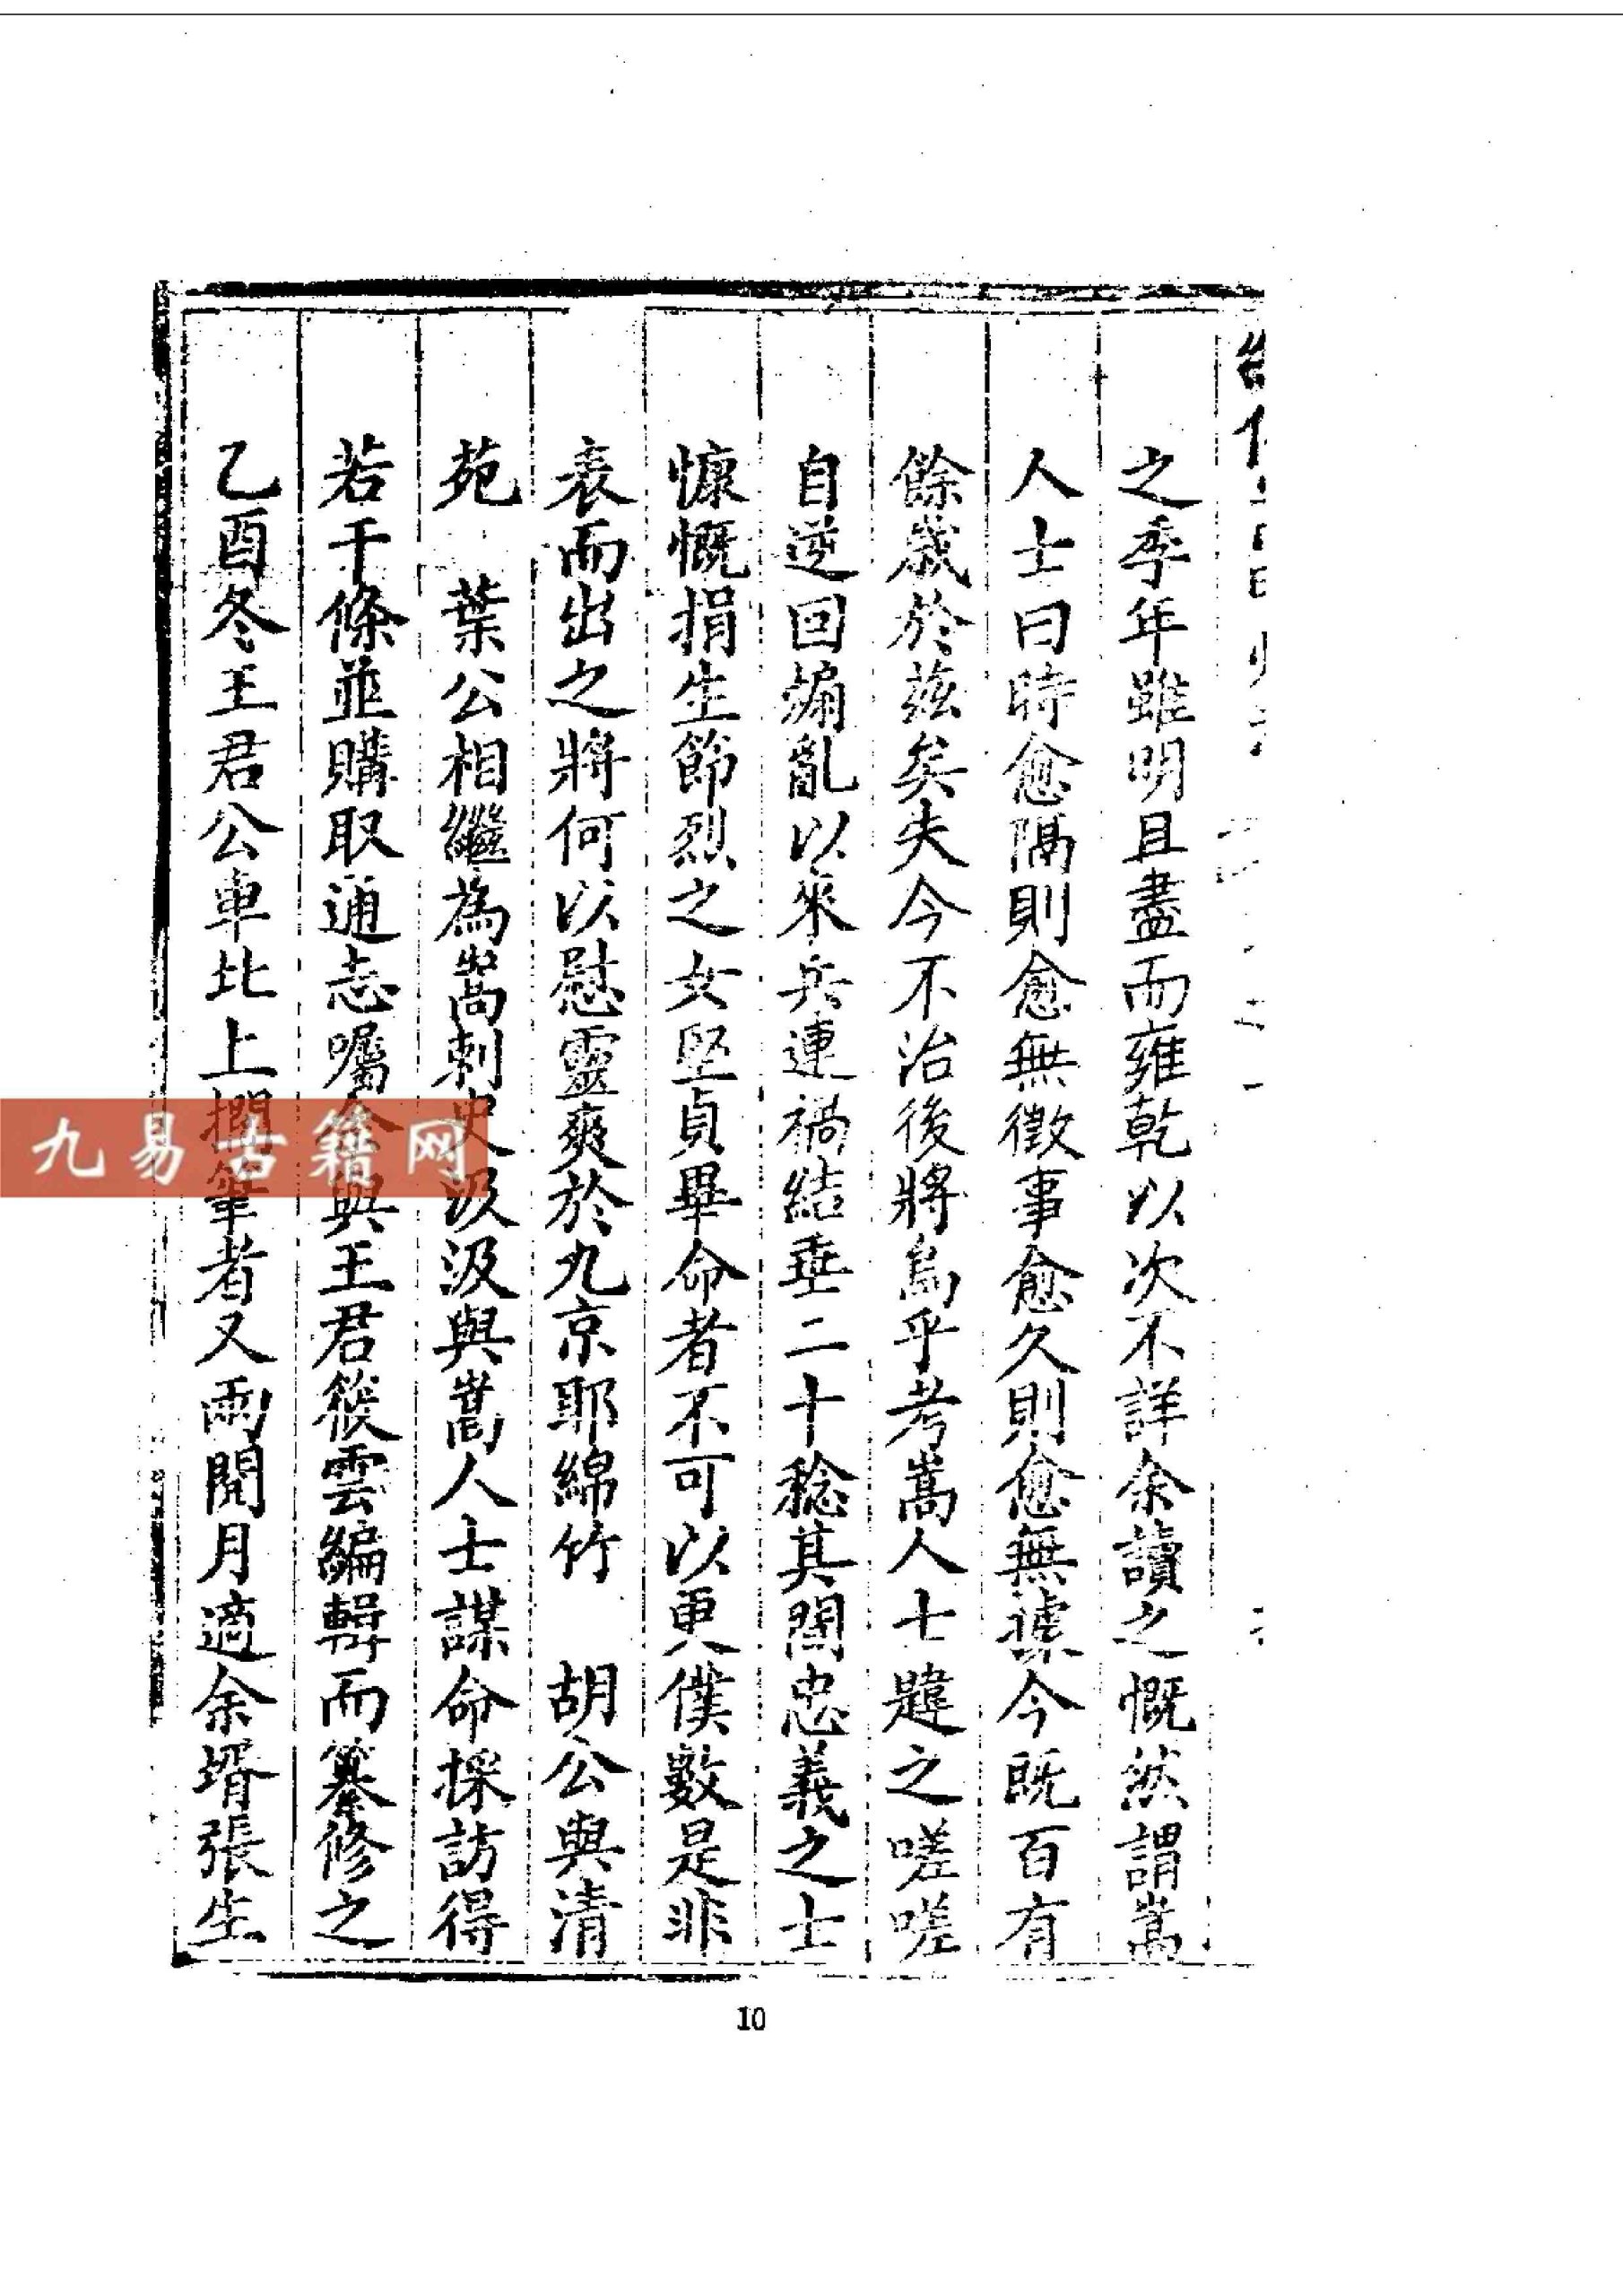 之季年雖明且盡而雍乾以次不詳余讀之慨然謂嵩
人士曰時愈隔則愈無徵事愈久則愈無據今既百有
餘歲於茲矣失今不治後將烏乎考嵩人士韙之嗟嗟
自逆回煽亂以來兵連禍結垂二十稔其闔忠義之士
慷慨捐生節烈之女堅貞畢命者不可以更僕數是非
表而出之將何以慰靈爽於九京耶綿竹 胡公與清
苑 葉公相繼為嵩刺史汲汲與嵩人士謀命採訪得
若干條並購取通志囑余與王君筱雲編輯而纂修之
乙酉冬王君公車北上擱筆者又兩閱月適余壻張生
九易古籍网
10